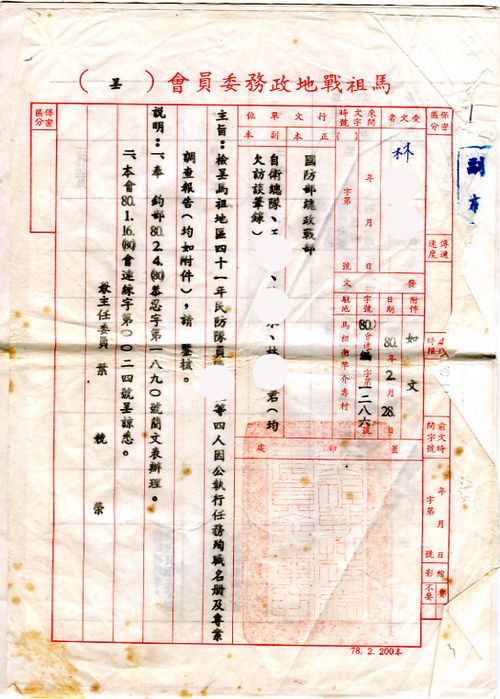 馬祖戰地政務委員會（呈）
保密區分
受文者
林
來文時間字號
年 月 日
字第 號
行文單位
正本（ ）
副本
國防部總政戰部
自衛總隊、
林
君（均
欠訪談筆錄）
保密區分
副本
傳遞速度
發文
附件
如文
日期
80年2月28日
字號
(80)會連編字第一二八六號
駐地
馬祖南竿介壽村
蓋印處
前文時間字號
年 月 日
字第 號
縮影
要
不要
主旨：檢呈馬祖地區四十一年民防隊員
等四人因公執行任務殉職名冊及專案
調查報告（均如附件），請 鑒核。
說明：一、奉 鈞部80.2.4.(80)
字第一八九〇號簡文表辦理。
二、本會80.1.16.(80)會連練字第〇〇二四號呈諒悉。
兼主任委員 葉 競 榮
78. 2. 200本